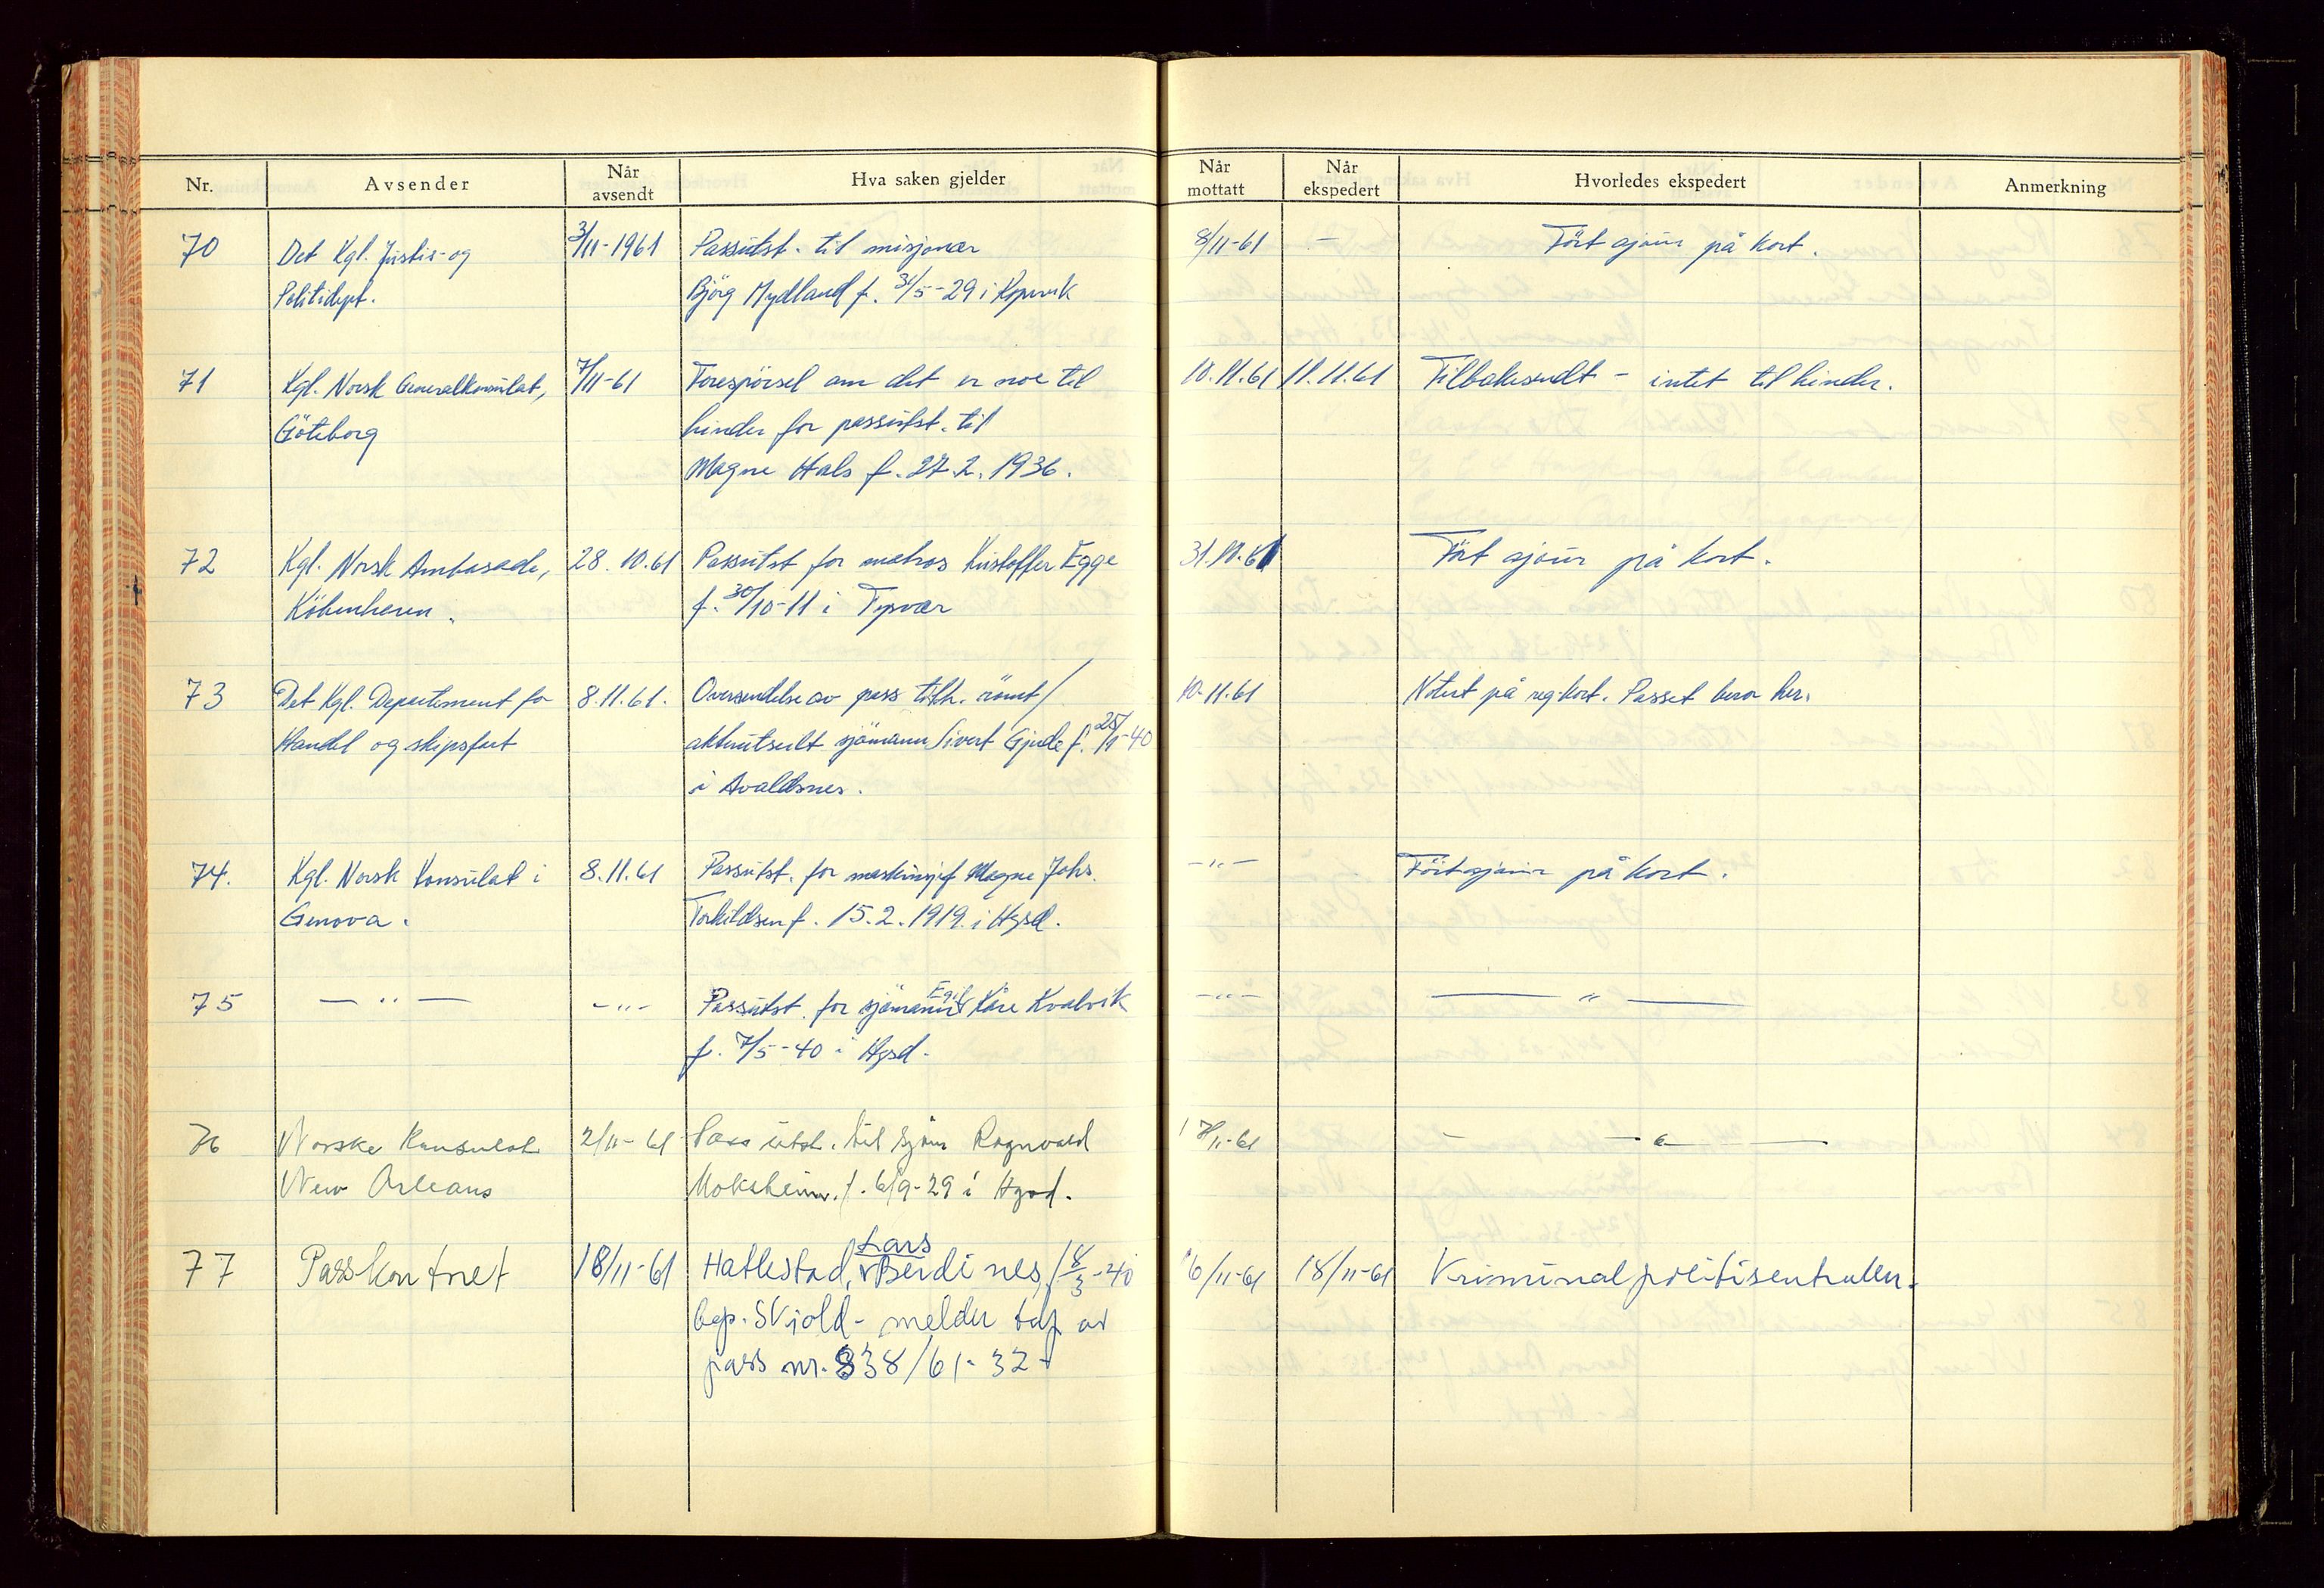 Nr. Avsender Når avsendt Hva saken gjelder Når mottatt Når ekspedert Hvorledes ekspedert Anmerkning
70 Det Kgl. Justis- og 3/11-1961 Passutst. til misjonær 8/11-61 - Ført ajour på kort.
Politidept. Bjørg Mydland f. 31/5-29 i Kopervik
71 Kgl. Norsk Generalkonsulat, 7/11-61 Forespørsel om det er noe til 10.11.61 11.11.61 Tilbakesendt - intet til hinder.
Göteborg hinder for passutst. til
Magne Hals f. 27.2.1936.
72 Kgl. Norsk Ambasade, 28.10.61 Passutst for matros Kristoffer Egge 31.10.61 Ført ajour på kort.
København. f. 30/10-11 i Tysvær
73 Det Kgl. Departement for 8.11.61. Oversendelse av pass tilh. rømt/ 10.11.61 Notert på reg.kort. Passet beror her.
Handel og skipsfart akterutseilt sjømann Sivert Gjude f. 25/1-40
i Avaldsnes.
74. Kgl. Norsk Konsulat i 8.11.61 Passutst. for maskinsjef Magne Johs. -"- Ført ajour på kort.
Genova. Torkildsen f. 15.2.1919. i Hgsd.
75 -"- -"- Passutst. for sjømann Egil Kåre Kvalvik -"- -"-
f. 7/5-40 i Hgsd.
76 Norske Konsulat 2/11-61 Pass utst. til sjøm Ragnvald 17/11-61 -"-
New Orleans Moksheim. f. 6/9-29 i Hgsd.
77 Passkontret 18/11-61 Hatlestad, Lars Berdines, f 8/3-40 16/11-61 18/11-61 Kriminalpolitisentralen.
bop. Skjold - melder tap av
pass nr. 838/61-32-